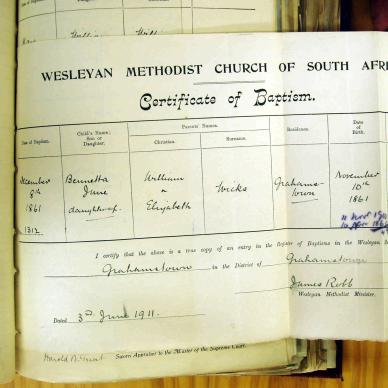 WESLEYAN METHODIST CHURCH OF SOUTH AFRI
Certificate of Baptism.
Date of Baptism.
Child's Name; Son or Daughter.
Parents' Names.
Christian.
Surname.
Residence.
Date of Birth.
December 8th 1861 1312
Bennetta June daughter of
William & Elizabeth
Wicks
Grahams-town
November 10th 1861
I certify that the above is a true copy of an entry in the Register of Baptisms in the Wesleyan
Grahamstown in the District of Grahamstown
James Robb
Wesleyan Methodist Minister.
Dated 3rd June 1911.
Sworn Appraiser to the Master of the Supreme Court.